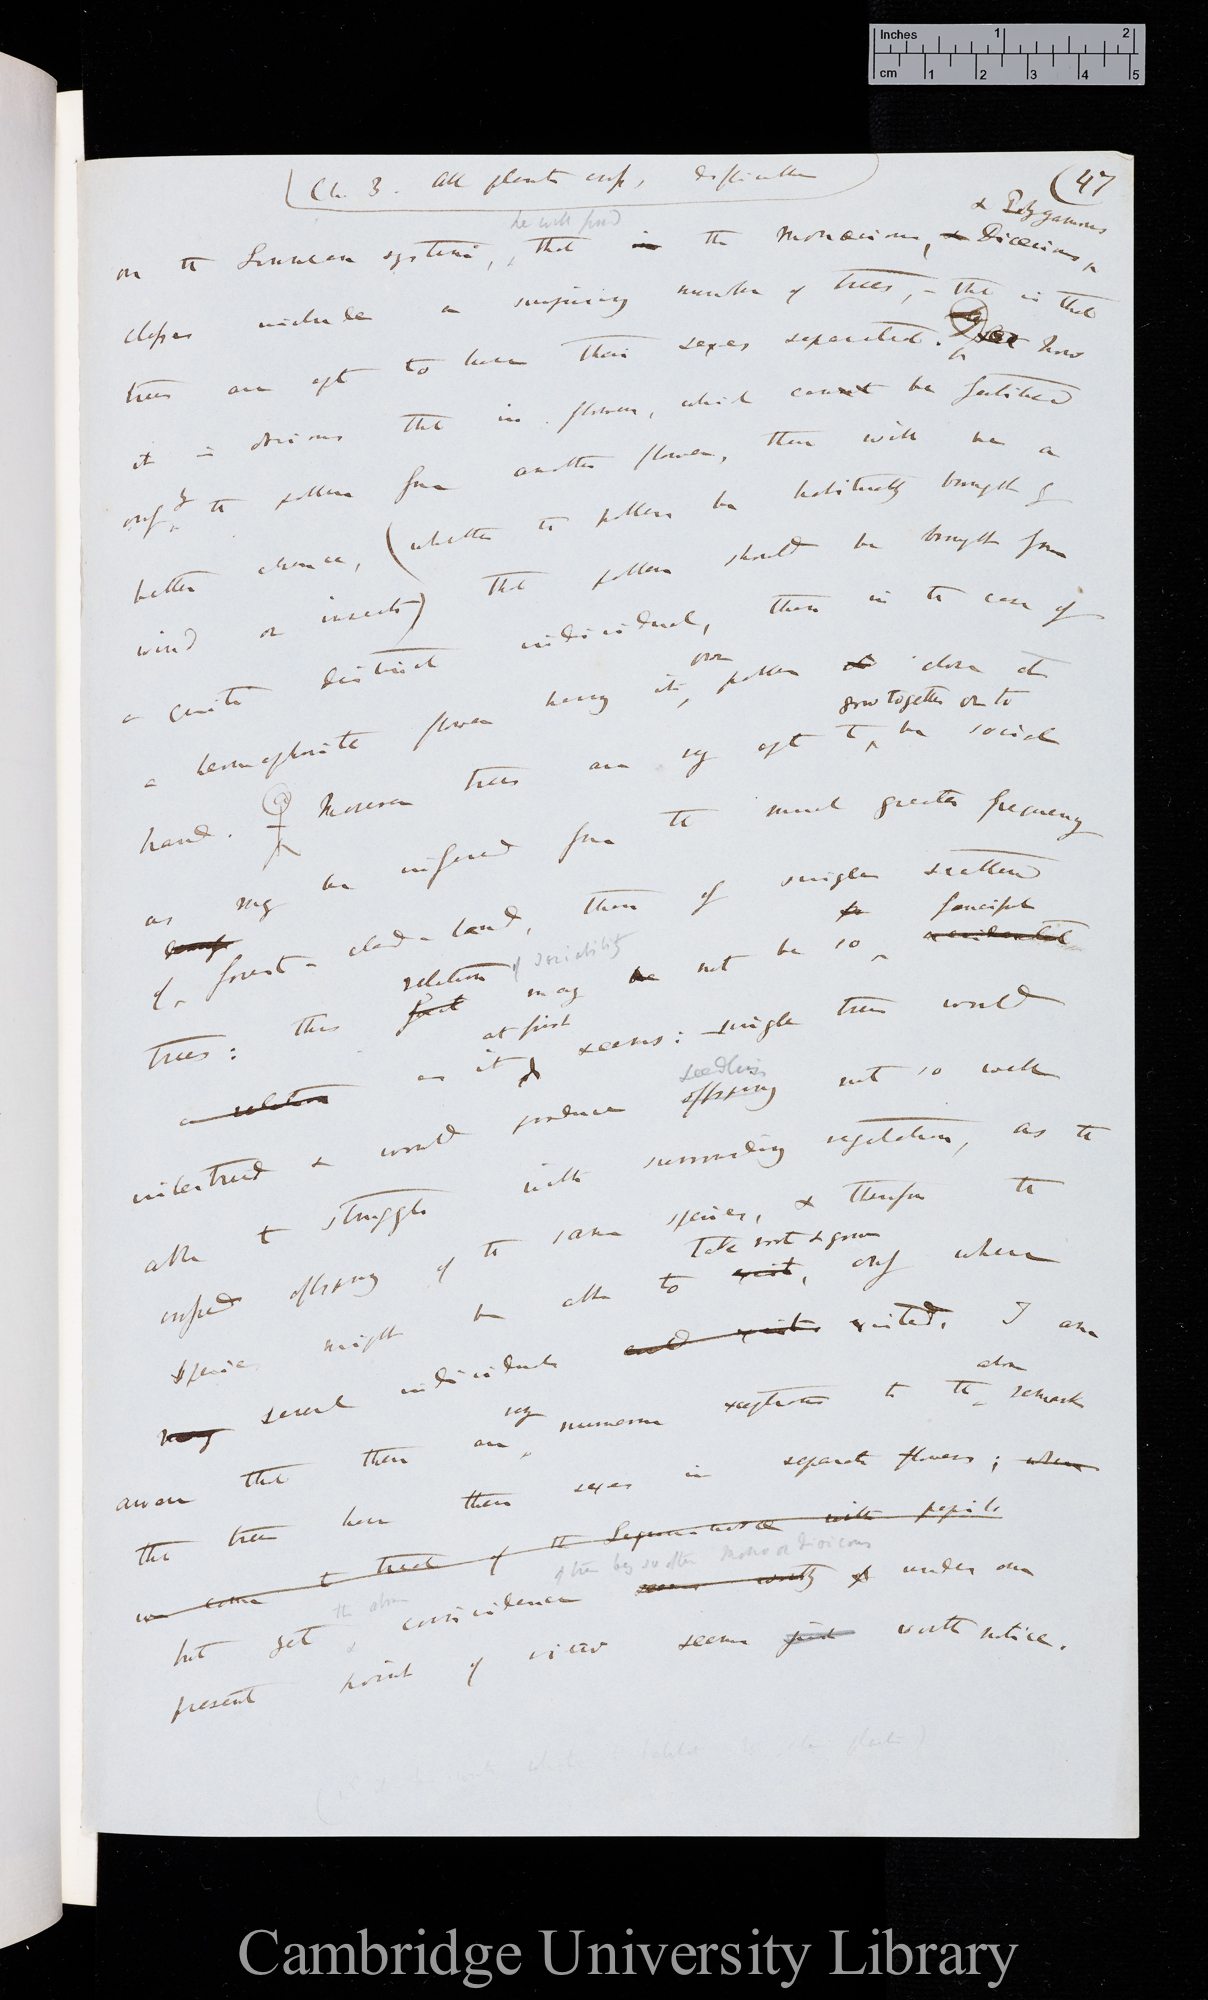 Inches 1 2
cm 1 2 3 4 5
Ch. 3. All plants cross, difficulties
(47
& Polygamous
he will find
on the Linnean system, that in the Monœcious, & Diœcious,
classes include a surprising number of trees, – that is that
trees are apt to have their sexes separated. Now
it is obvious that in flowers, which cannot be fertilised
by
except the pollen from another flower, there will be a
better chance, (whether the pollen be habitually brought by
wind or insects) that pollen should be brought from
a quite distinct individual, than in the case of
own
a hermaphrodite flower having its pollen close at
grow together or to
hand. Moreover trees are very apt to be social
as may be inferred from the much greater frequency
of forest-clad-land, than of single scattered
relation of sociability
fanciful
trees: this fact may be not be so accidental
at first
a relation as it seems: single trees would
seedlings
interbreed & would produce offspring not so well
able to struggle with surrounding vegetation, as the
crossed offspring of the same species, & therefore the
take root & grow
species might be able to exist, only where
many several individuals could exist existed. I am
very
above
aware that there are numerous exceptions to the remark
that trees have their sexes in separate flowers; when
we come to treat of the Leguminosæ with papil
of trees being so often Mono or dioicous
the above
but yet coincidence seems worthy & under our
present point of view seems just worth notice.
Cambridge University Library